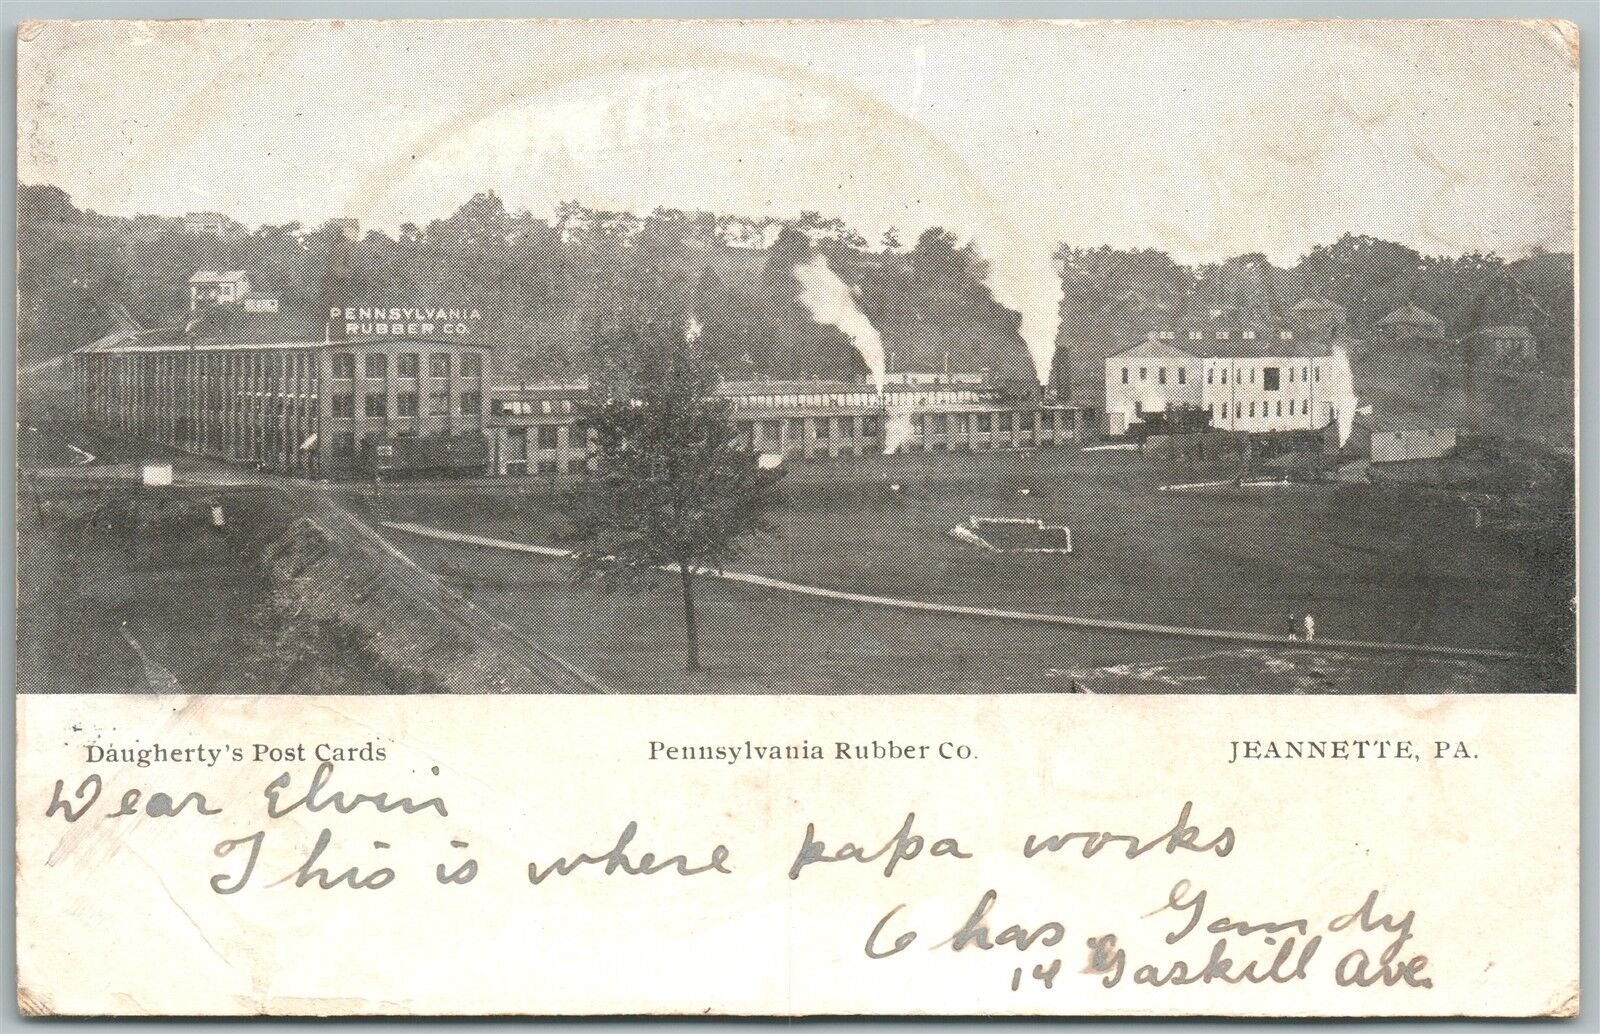 PENNSYLVANIA
RUBBER CO.
Daugherty's Post Cards
Pennsylvania Rubber Co.
JEANNETTE, PA.
Dear Elvin
This is where papa works
Chas. Gandy
14 Gaskill Ave.